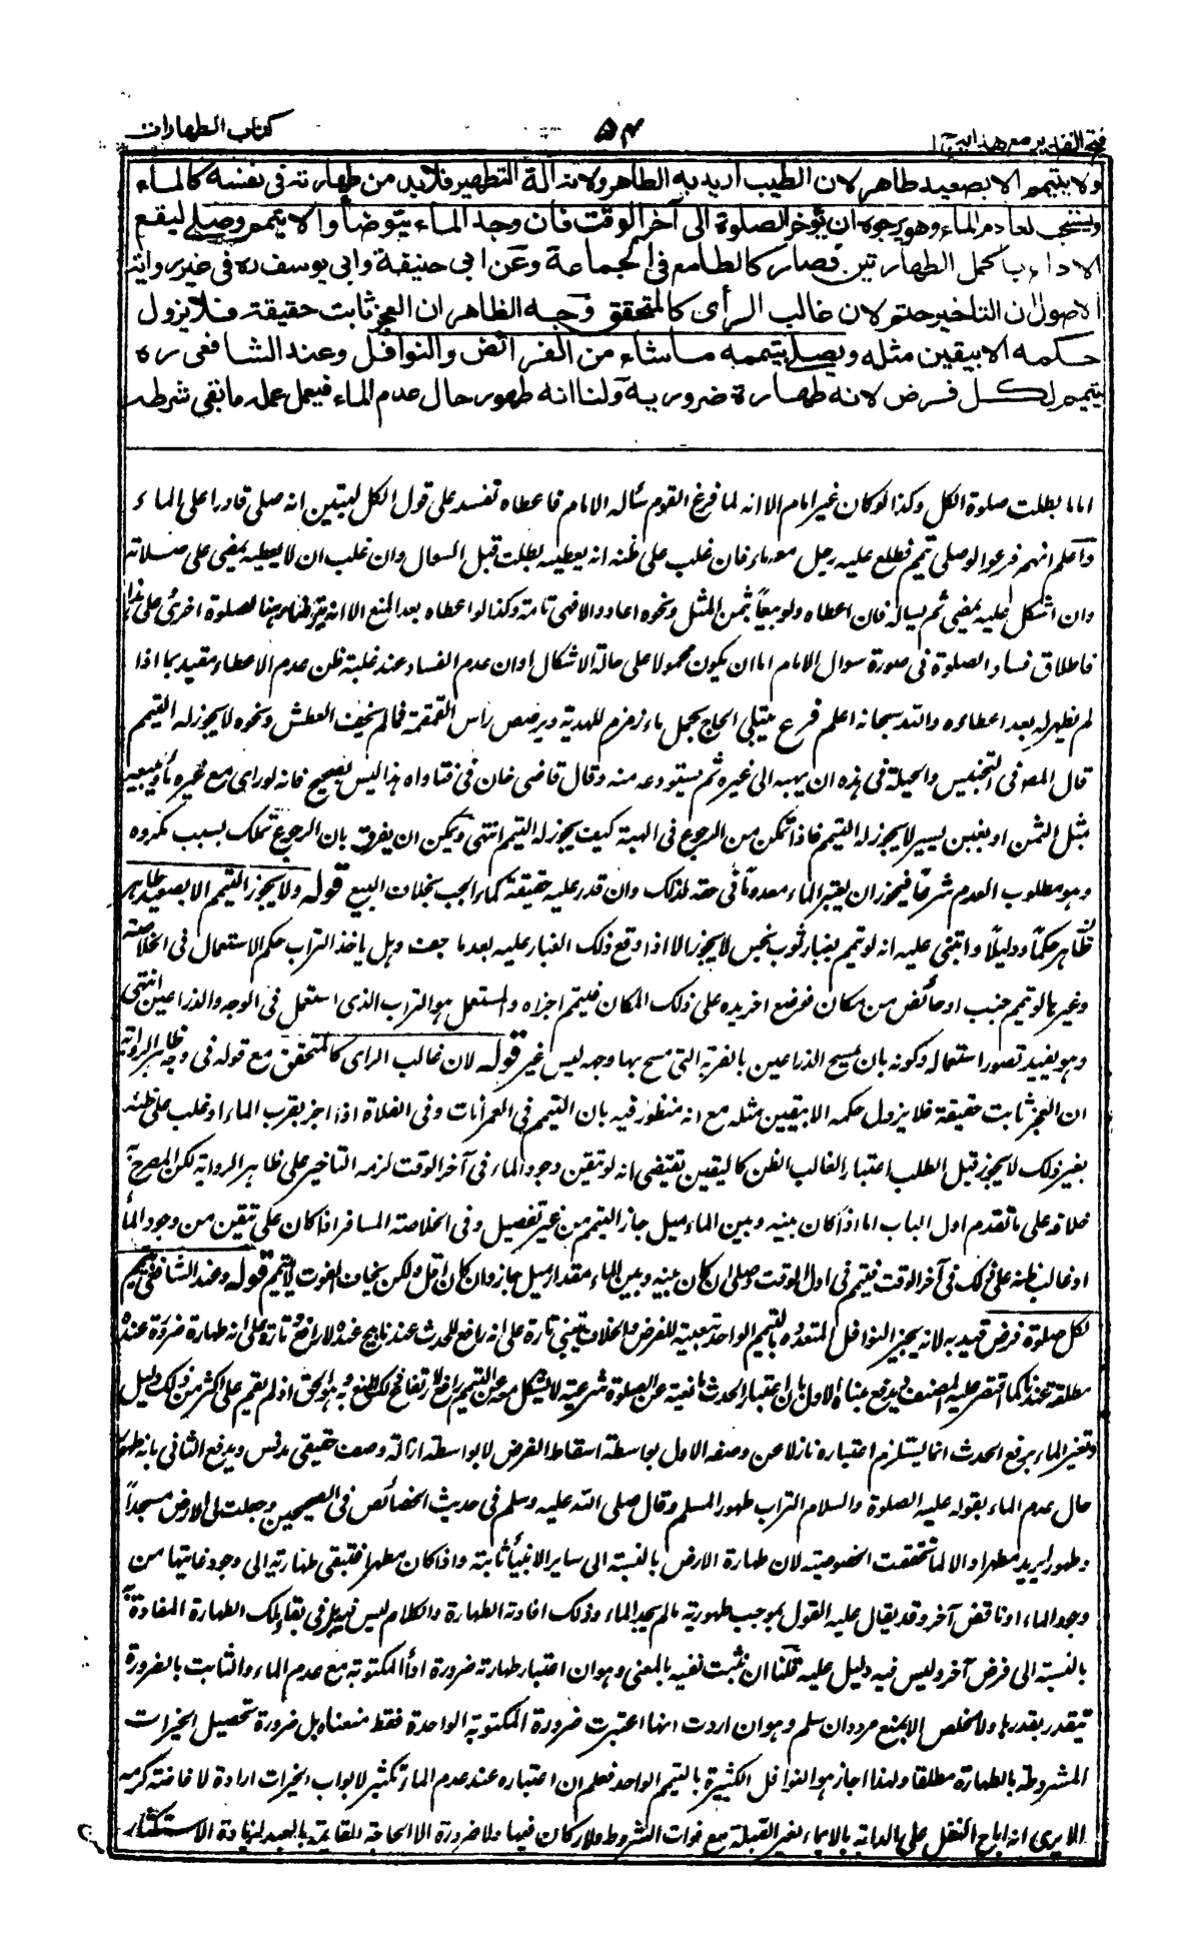 فتح القدير مع هدايه ج ١
٥٤
كتاب الطهارات
ولا يتيمم الا بصعيد طاهر لان الطيب اريد به الطاهر ولانه آلة التطهير فلابد من طهارته فى نفسه كالماء
ويستحب لعادم الماء وهو يرجوه ان يؤخر الصلوة الى آخر الوقت فان وجد الماء يتوضأ والا تيمم وصلى ليقع
الاداء باكمل الطهارتين فصار كالطامع فى الجماعة وعن ابى حنيفة وابى يوسف ره فى غير رواية
الاصول ان التاخير حتم لان غالب الرأى كالمتحقق وجه الظاهر ان العجز ثابت حقيقة فلا يزول
حكمه الا بيقين مثله ويصلى بتيممه ماشاء من الفرائض والنوافل وعند الشافعى ره
يتيمم لكل فرض لانه طهارة ضرورية ولنا انه طهور حال عدم الماء فيعمل عمله مابقى شرطه
اما ما بطلت صلوة الكل وكذا لو كان غير امام الا انه لما فرغ القوم سأله الامام فاعطاه تفسد على قول الكل لتبين انه صلى قادرا على الماء
واعلم انهم فرعوا لو صلى بتيمم فطلع عليه رجل معه ماء فان غلب على ظنه انه يعطيه بطلت قبل السوال وان غلب ان لا يعطيه يمضى على صلاته
وان اشكل عليه يمضى ثم يساله فان اعطاه ولو بيعاً بثمن المثل ونحوه اعاد والا فهى تامة وكذا لو اعطاه بعد المنع الا انه يتوضأ هنا لصلوة اخرى وعلى هذا
فاطلاق فساد الصلوة فى صورة سوال الامام اما ان يكون محمولا على حالة الاشكال او ان عدم الفساد عند غلبة ظن عدم الاعطاء مقيد بما اذا
لم يظهر له بعد اعطاءه والله سبحانه اعلم فرع يبتلى الحاج بحمل ماء زمزم للهدية ويرصص رأس القمقمة فما لم يخف العطش ونحوه لا يجوز له التيمم
قال المص فى التجنيس والحيلة فى هذه ان يهبه الى غيره ثم يستودعه منه وقال قاضى خان فى فتاواه هذا ليس بصحيح فانه لو راى مع غيره ماء يبيعه
بمثل الثمن او بغبن يسير لا يجوز له التيمم فاذا تمكن من الرجوع فى الهبة كيف يجوز له التيمم انتهى ويمكن ان يفرق بان الرجوع تملك بسبب مكروه
وهو مطلوب العدم شرعاً فيجوز ان يعتبر الماء معدوماً فى حقه لذلك وان قدر عليه حقيقة كماء الحب بخلاف البيع قوله ولا يجوز التيمم الا بصعيد طاهر
ظاهر حكماً ودليلاً وابتنى عليه انه لو تيمم بغبار ثوب نجس لا يجوز الا اذا وقع ذلك الغبار عليه بعد ما جف وهل ياخذ التراب حكم الاستعمال فى الخلاصة
وغيرها لو تيمم جنب او حائض من مكان فوضع آخر يده على ذلك المكان فتيمم اجزاه والمستعمل هو التراب الذى استعمل فى الوجه والذراعين انتهى
وهو يفيد تصور استعماله وكونه بان يمسح الذراعين بالضربة التى مسح بها وجهه ليس غير قوله لان غالب الراى كالمتحقق مع قوله فى وجه ظاهر الرواية
ان العجز ثابت حقيقة فلا يزول حكمه الا بيقين مثله مع انه منظور فيه بان التيمم فى العمرانات وفى الفلاة اذا اخبر بقرب الماء او غلب على ظنه
بغير ذلك لا يجوز قبل الطلب اعتبارا لغالب الظن كاليقين تقتضى انه لو تيقن وجود الماء فى آخر الوقت لزمه التاخير على ظاهر الرواية لكن المصرح به
خلافه على ما تقدم اول الباب اما اذا كان بينه وبين الماء ميل جاز التيمم من غير تفصيل وفى الخلاصة المسافر اذا كان على تيقن من وجود الماء
او غالب ظنه على ذلك فى آخر الوقت فتيمم فى اول الوقت وصلى ان كان بينه وبين الماء مقدار ميل جاز وان كان اقل ولكن يخاف الفوت لا يتيمم قوله وعند الشافعى يتيمم
لكل صلوة فرض قيد به لانه يجيز النوافل المتعدده بالتيمم الواحد تبعية للفرض والخلاف يبتنى تارة على انه رافع للحدث عندنا مبيح عنده لا رافع وتارة على انه طهارة ضرورة عنده
مطلقة عندنا كما اقتصر عليه المصنف ويدفع مبنى الاول بان اعتبار الحدث مانعية عن الصلوة شرعية لا يشكل معه ان التيمم رافع لارتفاع ذلك المنع به وهو الحق اذ لم يقم على اكثر من ذلك دليل
وتغير الماء برفع الحدث انما يستلزم اعتباره نازلا عن وصفه الاول بواسطة اسقاط الفرض لا بواسطة ازالة وصف حقيقى مدنس ويدفع الثانى بانه طهور
حال عدم الماء بقوله عليه الصلوة والسلام التراب طهور المسلم وقال صلى الله عليه وسلم فى حديث الخصائص فى الصحيحين وجعلت لى الارض مسجداً
وطهورا يريد مطهرا والا لما تحققت الخصوصية لان طهارة الارض بالنسبة الى ساير الانبياء ثابتة واذا كان مطهرا فتبقى طهارته الى وجود غايتها من
وجود الماء او ناقض آخر وقد يقال عليه القول بموجب طهوريته ما لم يجد الماء وذلك افادة الطهارة والكلام ليس فيه بل فى بقاء تلك الطهارة المفادة به
بالنسبة الى فرض آخر وليس فيه دليل عليه قلنا ان نثبت نفيه بالمعنى وهو ان اعتبار طهارته ضرورة اداء المكتوبة مع عدم الماء والثابت بالضرورة
يتقدر بقدرها ولا مخلص الا بمنع مردوان سلم وهو ان اردت انها اعتبرت ضرورة المكتوبة الواحدة فقط منعناه بل ضرورة تحصيل الخيرات
المشروطة بالطهارة مطلقا ولهذا اجاز هو النوافل الكثيرة بالتيمم الواحد فعلم ان اعتباره عند عدم الماء تكثير لابواب الخيرات ارادة لافاضة كرمه
الا يرى انه اباح النفل على الدابة بالايماء لغير القبلة مع فوات الشروط والاركان فيها ولا ضرورة الا الحاجة القائمة بالعبد لزيادة الاستكثار